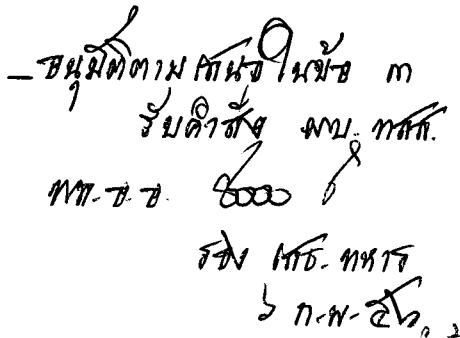 - อนุมัติตามเสนอในข้อ ๓
รับคำสั่ง ผบ.ทสส.
พล.อ.อ.
รอง เสธ.ทหาร
๖ ก.พ. ๕๖